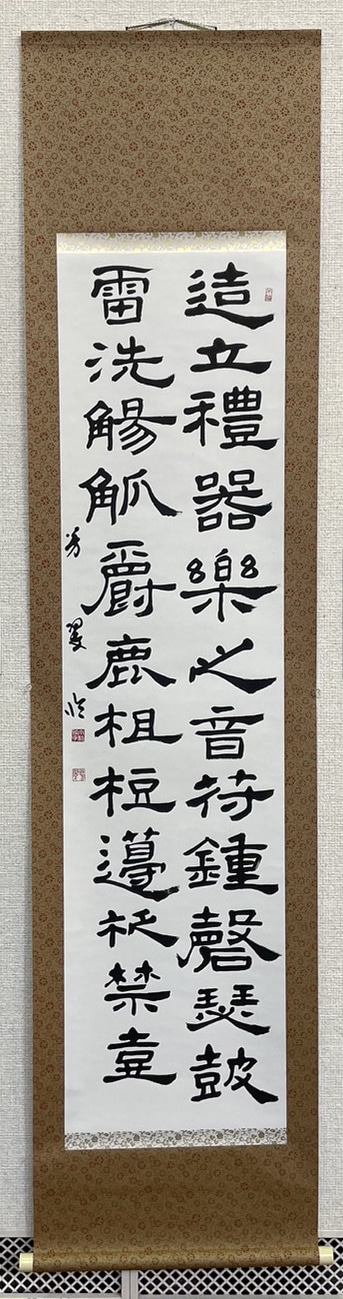 造立禮器樂之音苻鍾磬瑟鼓
雷洗觴觚爵鹿柤梪籩柉禁壺
臨